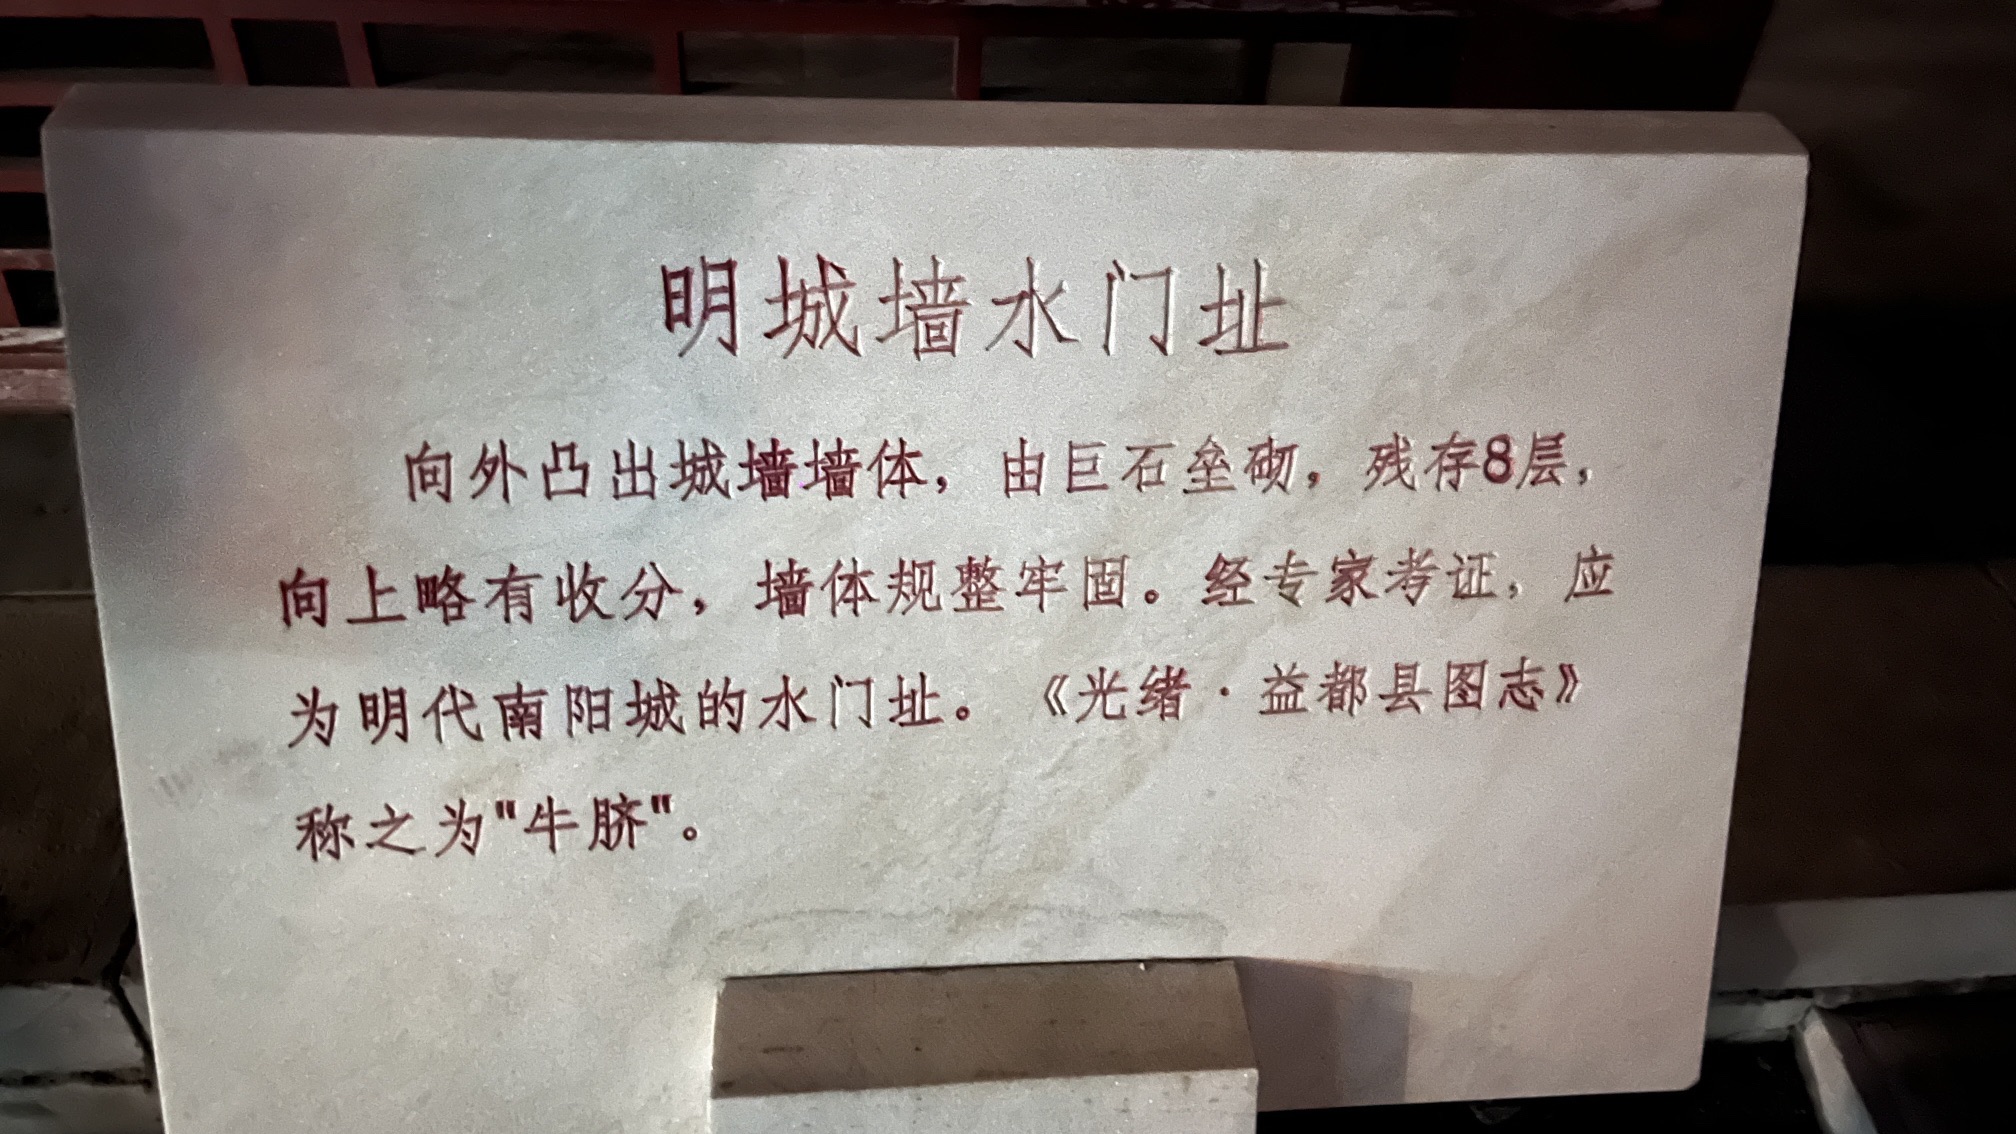 明城墙水门址
向外凸出城墙墙体，由巨石垒砌，残存8层，
向上略有收分，墙体规整牢固。经专家考证，应
为明代南阳城的水门址。《光绪·益都县图志》
称之为"牛脐"。